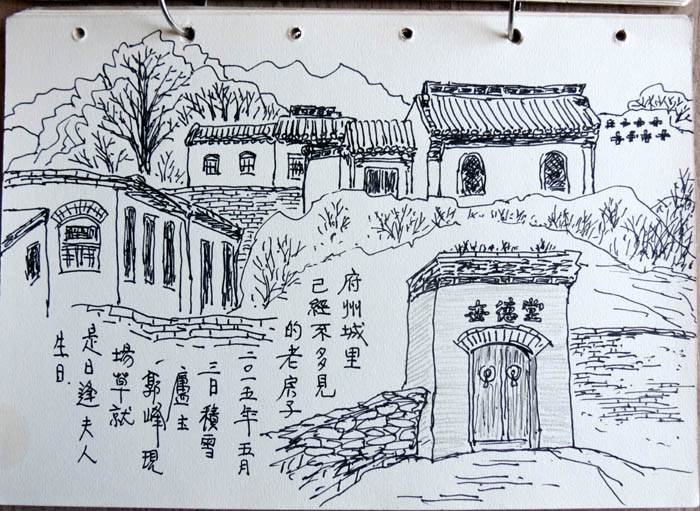 世德堂
府州城里
己經不多見
的老房子
二〇一五年五月
三日積雪
廬主
郭峰現
場草就
是日逢夫人
生日.